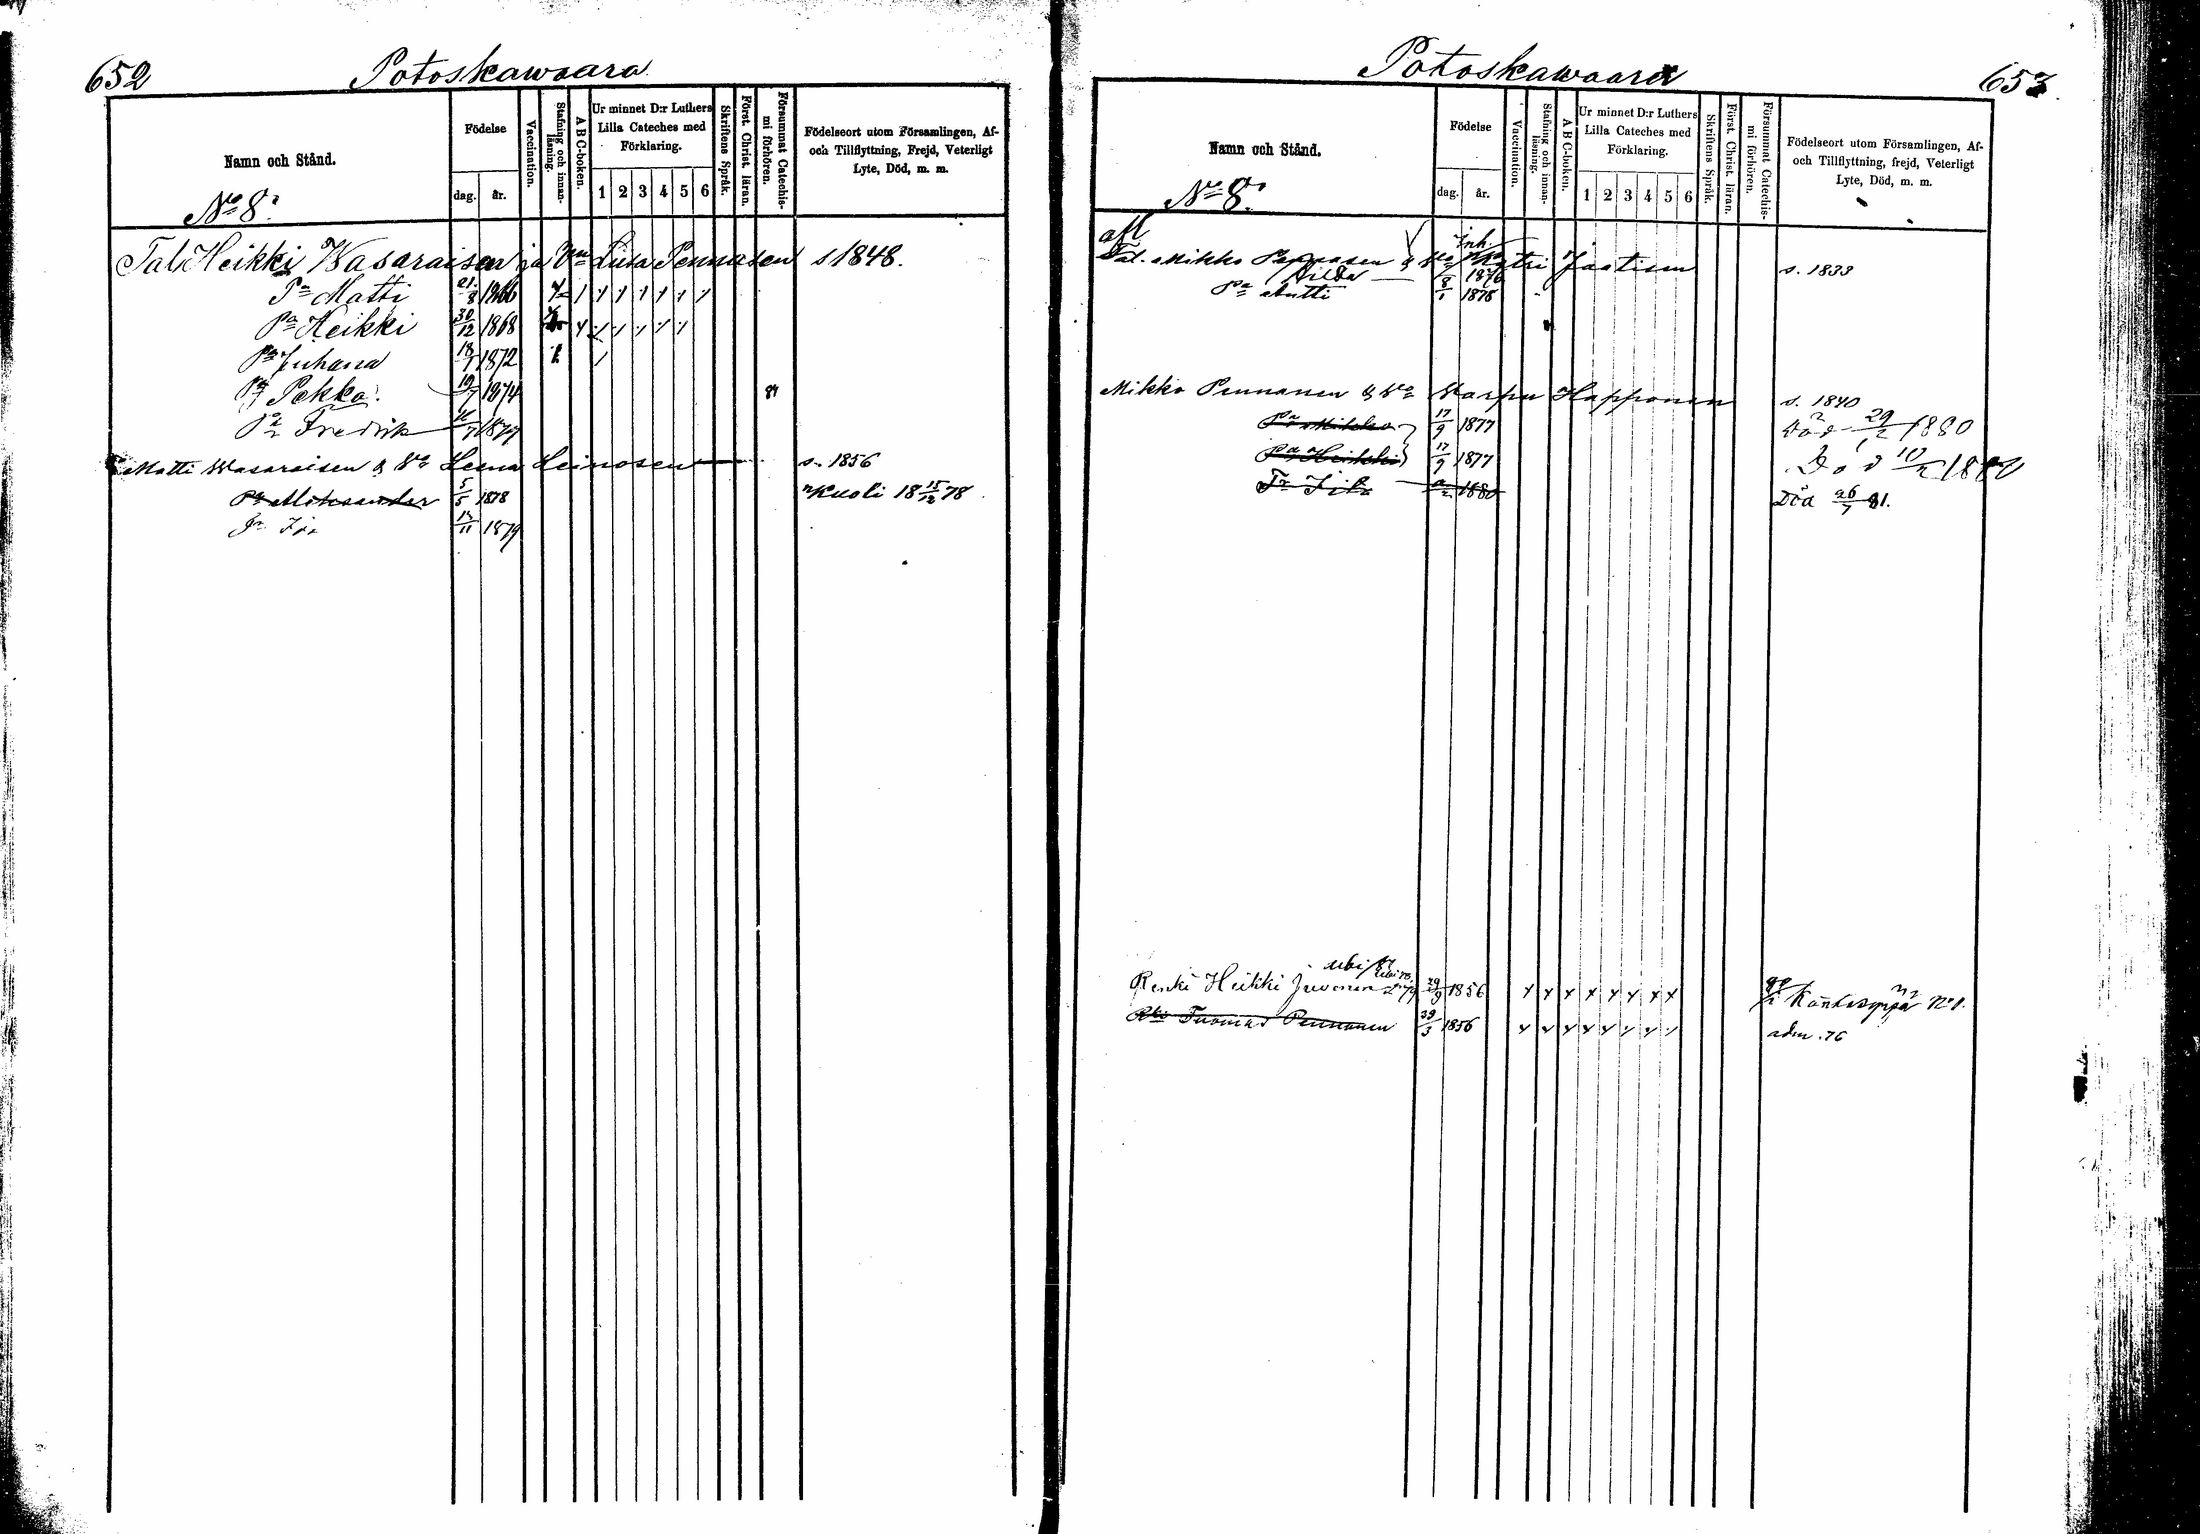 652
Potoskawaara
Namn och Stånd.
No 8.
Födelse
dag.
år.
Vaccination.
Stafning och innan-
läsning.
A B C-boken.
Ur minnet D:r Luthers
Lilla Cateches med
Förklaring.
1 2 3 4 5 6
Skriftens Språk.
Först. Christ. läran.
Försummat Catechis-
mi förhören.
Födelseort utom Församlingen, Af-
och Tillflyttning, Frejd, Veterligt
Lyte, Död, m. m.
Tal. Heikki Wasaraisen ja Vmo Liisa Pennasen s 1848.
Pa Matti 21/8 1866
Pa Heikki 30/12 1868
Pa Juhana 18/7 1872
Pa Pekka. 19/7 1874 84
Pa Fredrik 1877
Matti Wasaraisen & Va Leena Heinosen s. 1856
Pa Aleksander 5/5 1878 Kuoli 18 15/12 78
1879
653
Potoskawaara
Namn och Stånd.
No 8.
Födelse
dag.
år.
Vaccination.
Stafning och innan-
läsning.
A B C-boken.
Ur minnet D:r Luthers
Lilla Cateches med
Förklaring.
1 2 3 4 5 6
Skriftens Språk.
Först. Christ. läran.
Försummat Catechis-
mi förhören.
Födelseort utom Församlingen, Af-
och Tillflyttning, frejd, Veterligt
Lyte, Död, m. m.
Inh.
Tal. Mikko Pennasen & Va Katri Jaatisen s. 1833
1876
Pa Antti 8/1 1878
Mikko Pennanen & Va Warpu Happonen s. 1840
Pa Mikko 17/9 1877 Död 29/2 1880
Pa Heikki 17/9 1877 Död 10/2 1880
1880 Död 26/7 81.
Renki Heikki Juvonen 79 29/9 1856
Rki Tuomas Pennanen 29/3 1856 adm. 76